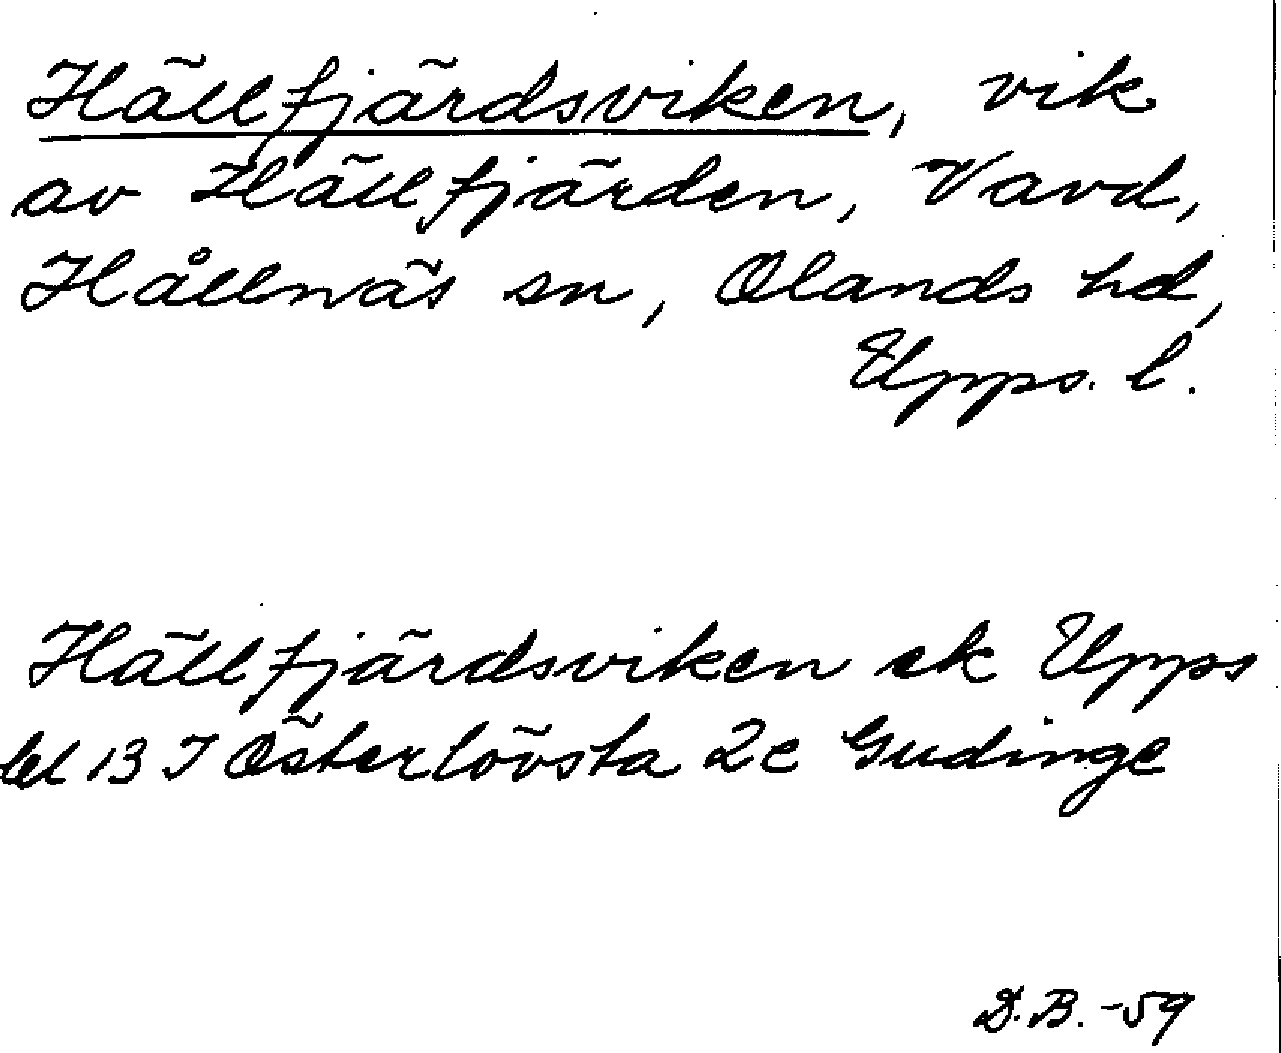 Hällfjärdsviken, vik
av Hällfjärden, Vavd,
Hållnäs sn, Olands hd,
Upps. l.
Hällfjärdsviken ek Upps
bl 13 I Österlövsta 2e Gudinge
D.B. -59